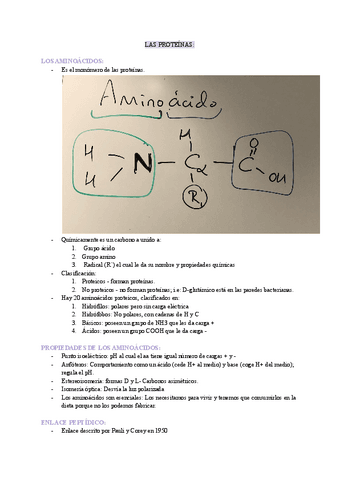 LAS PROTEÍNAS
LOS AMINOÁCIDOS:
- Es el monómero de las proteínas.
Aminoácido
H
H
N
H
Cα
R
C
O
OH
- Químicamente es un carbono α unido a:
1. Grupo ácido
2. Grupo amino
3. Radical (R´) el cual le da su nombre y propiedades químicas
- Clasificación:
1. Proteicos - forman proteínas.
2. No proteicos - no forman proteínas; i.e: D-glutámico está en las paredes bacterianas.
- Hay 20 aminoácidos proteicos, clasificados en:
1. Hidrófilos: polares pero sin carga eléctrica
2. Hidrófobos: No polares, con cadenas de H y C
3. Básicos: poseen un grupo de NH3 que les da carga +
4. Ácidos: poseen un grupo COOH que le da carga -
PROPIEDADES DE LOS AMINOÁCIDOS:
- Punto isoeléctrico: pH al cual el aa tiene igual número de cargas + y -
- Anfóteros: Comportamiento como un ácido (cede H+ al medio) y base (coge H+ del medio),
regula el pH.
- Estereoisomería: formas D y L- Carbonos asimétricos.
- Isomería óptica: Desvía la luz polarizada
- Los aminoácidos son esenciales: Los necesitamos para vivir y tenemos que consumirlos en la
dieta porque no los podemos fabricar.
ENLACE PEPTÍDICO:
- Enlace descrito por Pauli y Corey en 1950